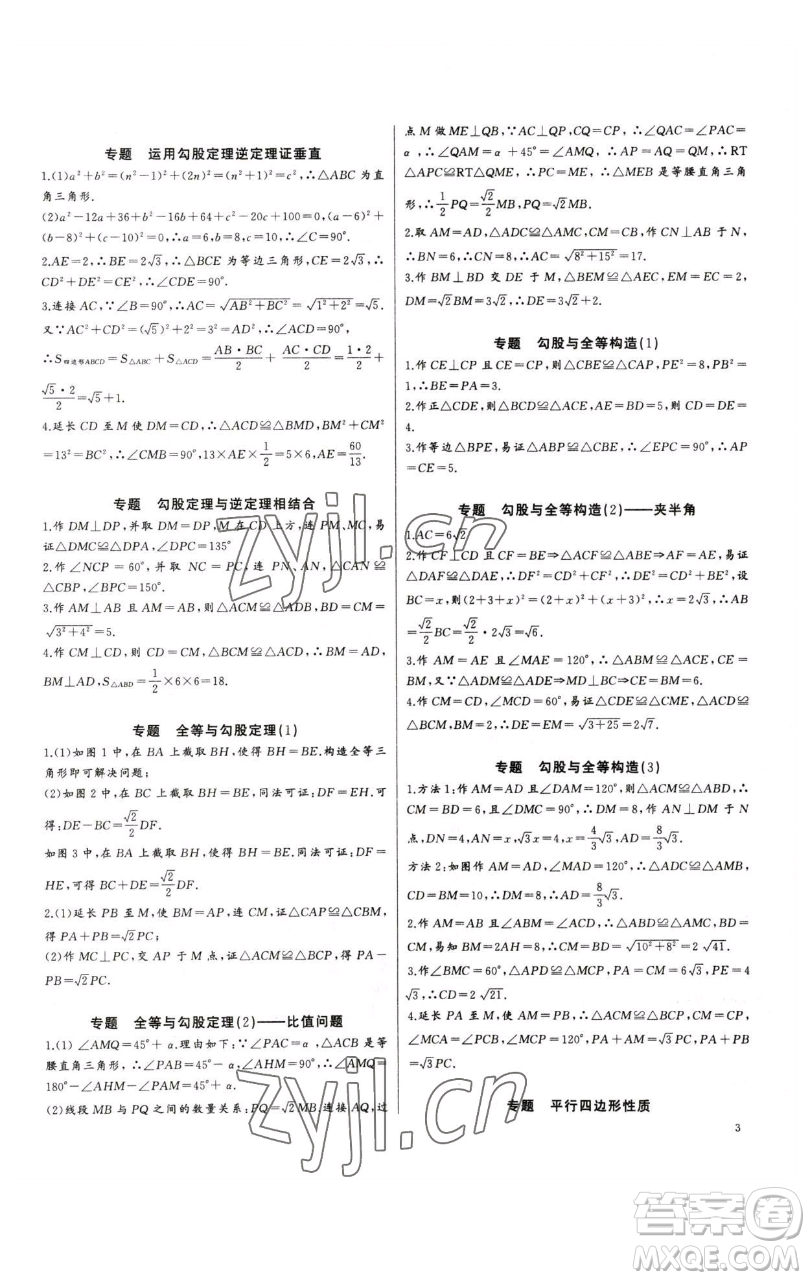 专题　运用勾股定理逆定理证垂直
1.(1)a²+b²=(n²-1)²+(2n)²=(n²+1)²=c²,∴△ABC 为直
角三角形.
(2)a²-12a+36+b²-16b+64+c²-20c+100=0,(a-6)²+
(b-8)²+(c-10)²=0,∴a=6,b=8,c=10,∴∠C=90°.
2.AE=2,∴BE=2√3,∴△BCE 为等边三角形,CE=2√3,∴
CD²+DE²=CE²,∴∠CDE=90°.
3.连接 AC,∵∠B=90°,∴AC=√(AB²+BC²)=√(1²+2²)=√5.
又∵AC²+CD²=(√5)²+2²=3²=AD²,∴∠ACD=90°,
∴S四边形ABCD=S△ABC+S△ACD=AB·BC/2+AC·CD/2=1·2/2+
√5·2/2=√5+1.
4.延长 CD 至 M 使 DM=CD,∴△ACD≌△BMD,BM²+CM²
=13²=BC²,∴∠CMB=90°,13×AE×1/2=5×6,∴AE=60/13.
专题　勾股定理与逆定理相结合
1.作 DM⊥DP,并取 DM=DP,M 在 CD 上方,连 PM、MC,易
证△DMC≌△DPA,∠DPC=135°
2.作∠NCP=60°,并取 NC=PC,连 PN、AN,△CAN≌
△CBP,∠BPC=150°.
3.作 AM⊥AB 且 AM=AB,则△CAM≌△DAB,BD=CM=
√(3²+4²)=5.
4.作 CM⊥CD 且 CM=CD,则△BCM≌△ACD,∴BM=AD,
BM⊥AD,S△ABD=1/2×6×6=18.
专题　全等与勾股定理(1)
1.(1)如图 1 中,在 BA 上截取 BH,使得 BH=BE.构造全等三
角形即可解决问题;
(2)如图 2 中,在 BC 上截取 BH=BE,同法可证:DF=EH.可
得:DE-BC=√2/2DF.
如图 3 中,在 BA 上截取 BH,使得 BH=BE.同法可证:DF=
HE,可得 BC+DE=√2/2DF.
2.(1)延长 PB 至 M,使 BM=AP,连 CM,证△CAP≌△CBM,
得 PA+PB=√2PC;
(2)作 MC⊥PC,交 AP 于 M 点,证△ACM≌△BCP,得 PA-
PB=√2PC.
专题　全等与勾股定理(2)——比值问题
1.(1)∠AMQ=45°+α.理由如下:∵∠PAC=α,△ACB 是等
腰直角三角形,∴∠PAB=45°-α,∠AHM=90°,∴∠AMQ=
180°-∠AHM-∠PAM=45°+α.
(2)线段 MB 与 PQ 之间的数量关系:PQ=√2MB,连接 AQ,过
点 M 做 ME⊥QB,∵AC⊥QP,CQ=CP,∴∠QAC=∠PAC=
α,∴∠QAM=α+45°=∠AMQ,∴AP=AQ=QM,∴RT
△APC≌RT△QME,∴PC=ME,∴△MEB 是等腰直角三角
形,∴1/2PQ=√2/2MB,PQ=√2MB.
2.取 AM=AD,△ADC≌△AMC,∴BM=9,作 CN⊥AB 于 N,
∴BN=6,CN=8,∴AC=√(8²+15²)=17.
3.作 AM⊥BD 交 DE 于 M,△BEM≌△AEC,EM=EC=2,
DM=√2BM=3√2,∴DE=3√2+2.
专题　勾股与全等构造(1)
1.作 CE⊥CP 且 CE=CP,则△CBE≌△CAP,PE²=8,PB²=
1,∴BE=PA=3.
2.作正△CDE,则△BCD≌△ACE,AE=BD=5,∴CD=DE=
4.
3.作等边△BPE,易证△ABP≌△CBE,∠EPC=90°,∴AP
=CE=5.
专题　勾股与全等构造(2)——夹半角
1.AC=6√2
2.作 CF⊥CD 且 CF=CD,BF=BE⇒△ACF≌△AEF,易证
△DAF≌△DAE⇒AF=AE,易证△DAF≌△DAE⇒DF=DE,设
BC=x,则(2+3+x)²=(2+x)²+(3+x)²,∴x=2√3,∴AB
=√2/2BC=√2/2·2√3=√6.
3.作 AM=AE,∠MAE=120°,∴△ABM≌△ACE,∴BM=CE=
3,又∵△ADM≌△ADE,∴DM=DE=3√3,∴BD=6.
4.作 CM=CD,∠MCD=60°,易证△CDE≌△CME,△ACD≌
△BCM,∴BM=5,∴∠MBE=90°,∴DE=EM=√(3+25)=2√7.
专题　勾股与全等构造(3)
1.方法 1:作 AM=AD 且∠DAM=120°,则△ABM≌△ACD,
∴CM=BD=6,∵∠DMC=90°,∴DM=8,作 AN⊥DM 于 N
点,DN=4,AN=x,√3x=4,x=4/3√3,AD=8/3√3.
方法 2:如图作 AM=AD,∠MAD=120°,∴△ADC≌△AMB,
CD=BM=10,∴DM=8,∴AD=8/3√3.
2.作 AM=AB 且∠ABM=∠ABC=∠ADC,则△ACM≌△ABD,BD=
CM,易知 BM=2AH=8,∴CM=BD=√(10²+8²)=2√41.
3.作∠BMC=60°,△AMB≌△DCB,PA=CM=6√3,PM=4
√3,∴CD=2√21.
4.延长 PA 至 M,使 AM=PB,则△CAM≌△CBP,CM=CP,
∠MCA=∠BCP,∠MCP=120°,PA+AM=√3PC,PA+PB
=√3PC.
专题　平行四边形性质
3
zyjl.cn
zyjl.cn
答案圈
MXQE.COM